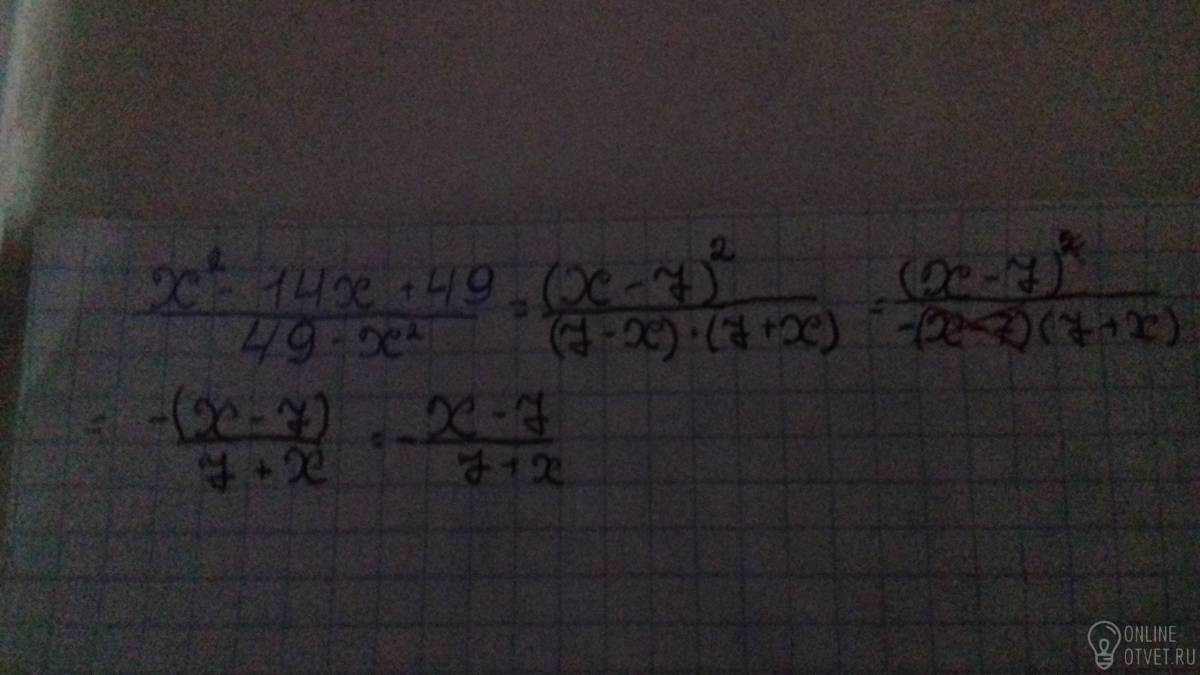 x² - 14x + 49 / 49 - x² = (x - 7)² / (7 - x) · (7 + x) = (x - 7)² / -(x - 7)(7 + x)
= -(x - 7) / 7 + x = - x - 7 / 7 + x
ONLINE
OTVET.RU